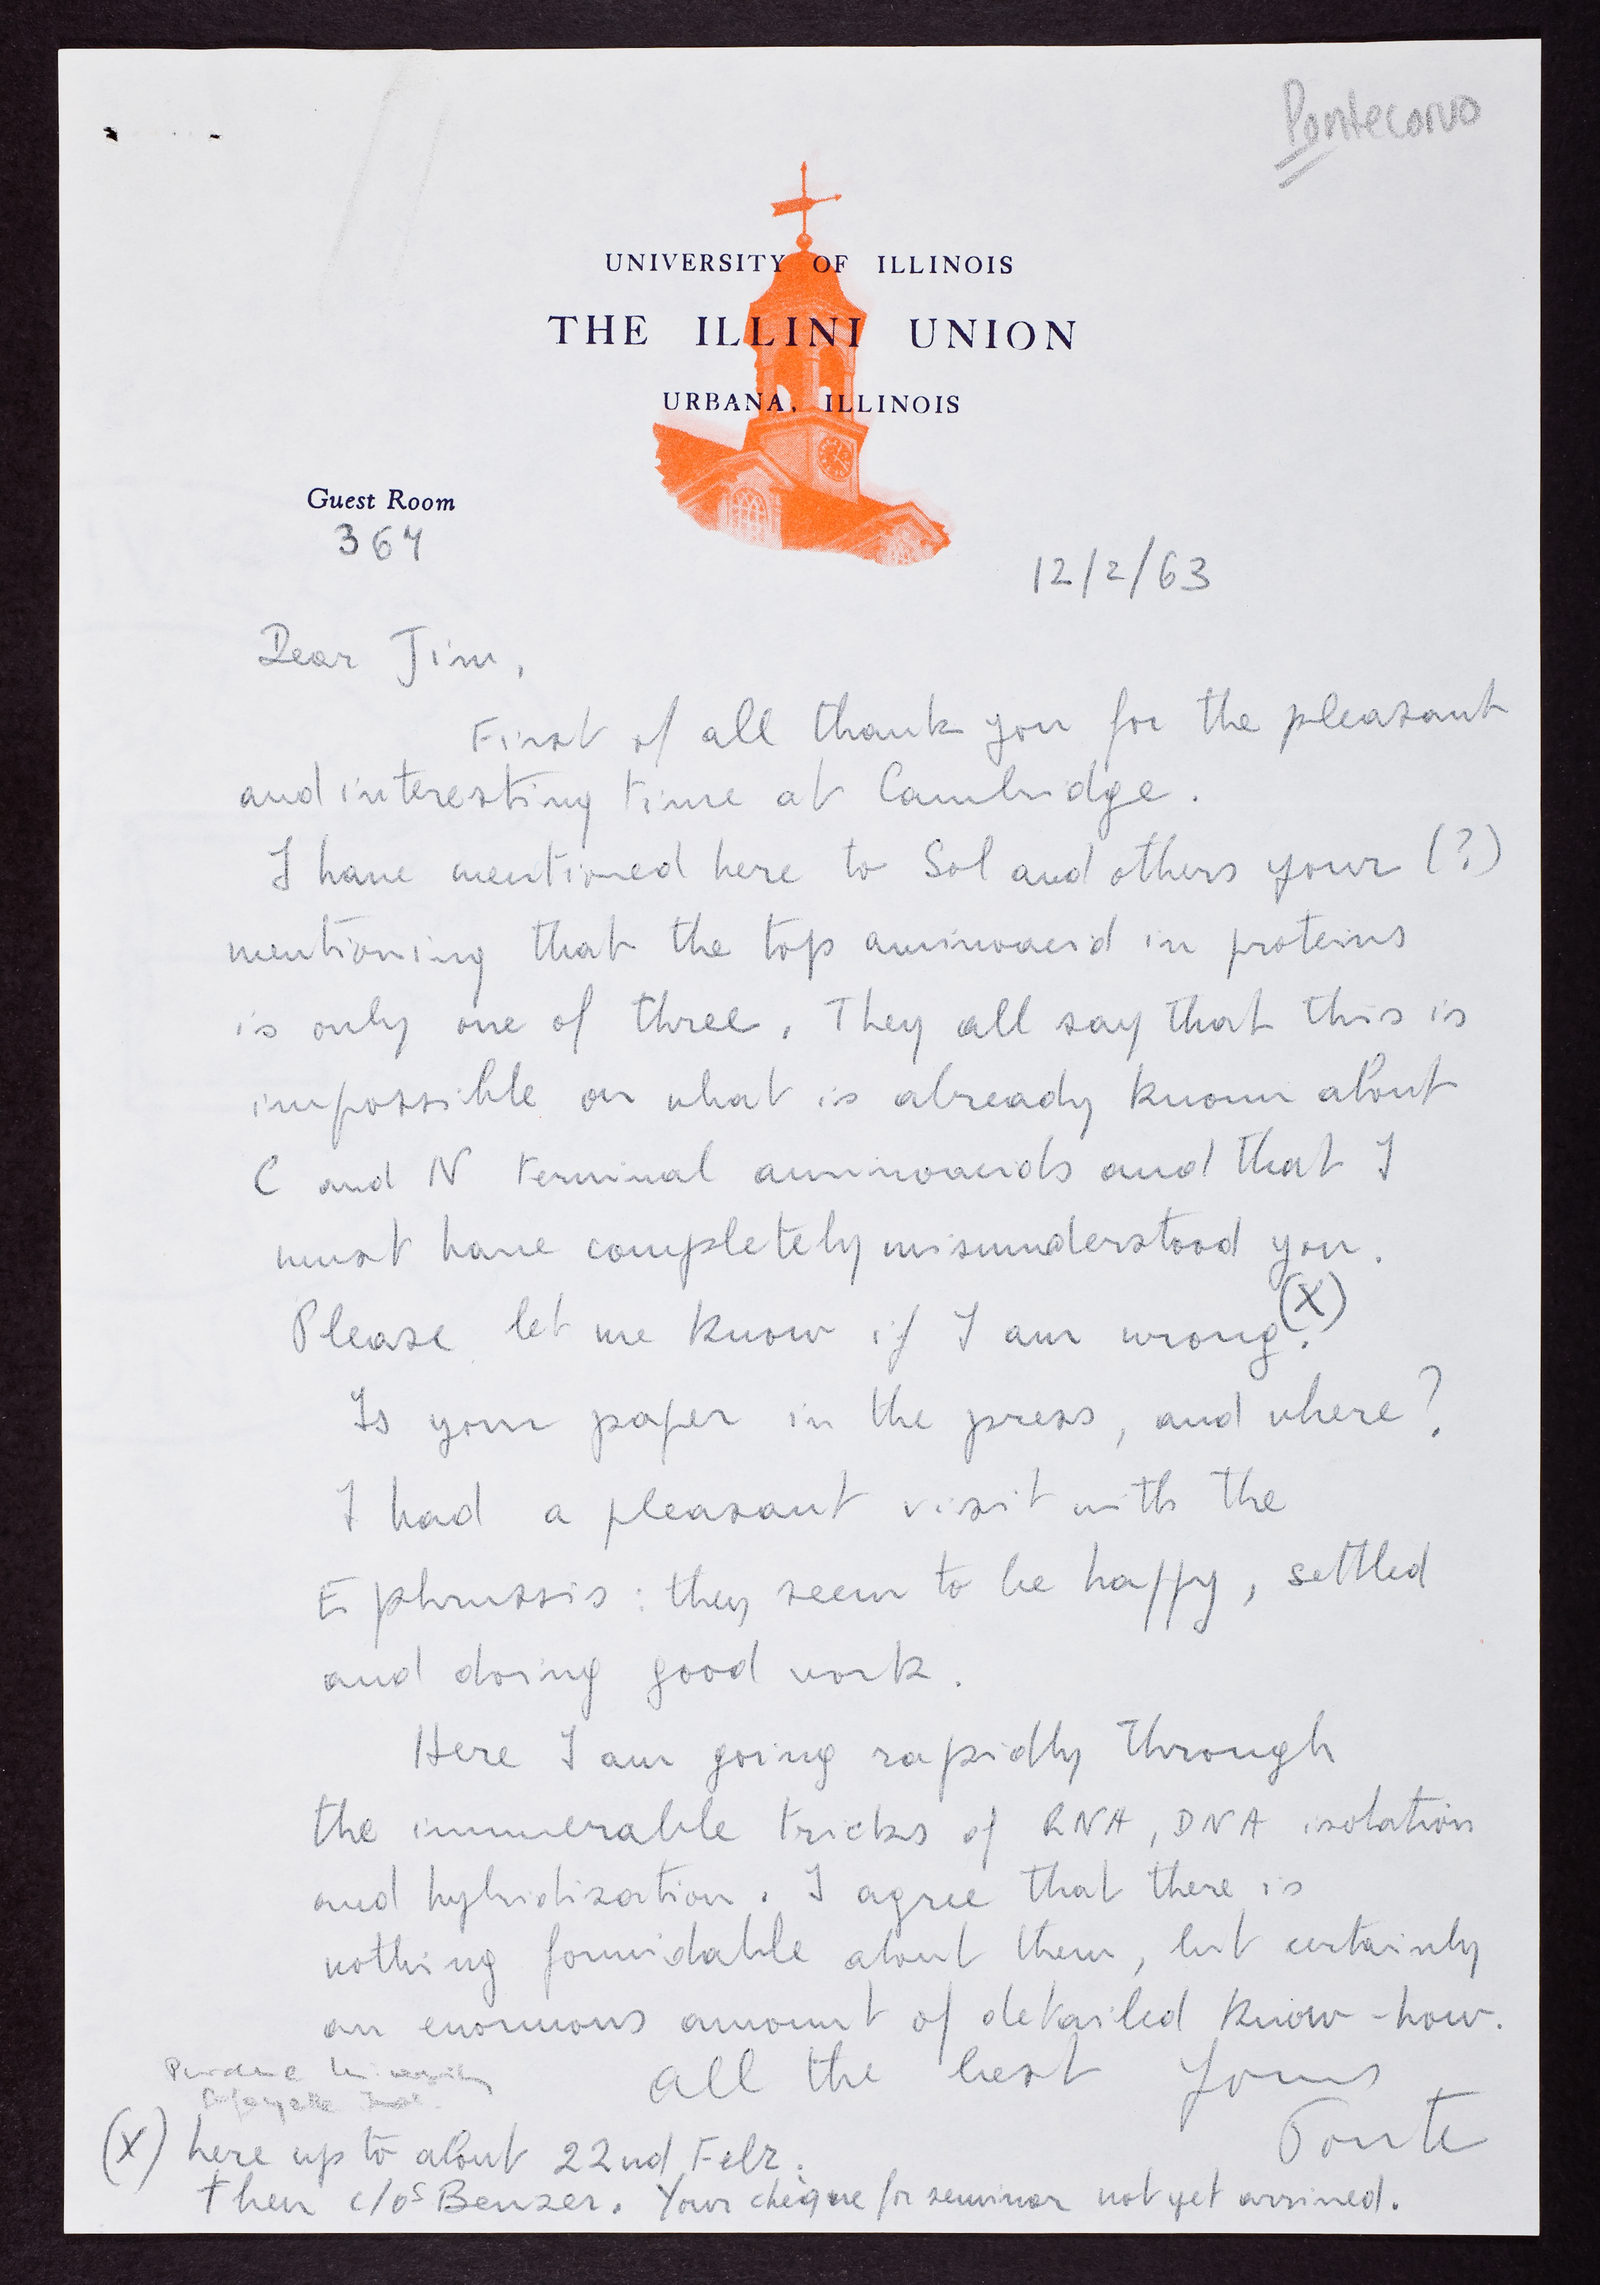 Pontecorvo
UNIVERSITY OF ILLINOIS
THE ILLINI UNION
URBANA, ILLINOIS
Guest Room
364
12/2/63
Dear Jim,
First of all thank you for the pleasant
and interesting time at Cambridge.
I have mentioned here to Sol and others your (?)
mentioning that the top aminoacid in proteins
is only one of three. They all say that this is
impossible on what is already known about
C and N terminal aminoacids and that I
must have completely misunderstood you.
Please let me know if I am wrong. (X)
Is your paper in the press, and where?
I had a pleasant visit with the
Ephrussis: they seem to be happy, settled
and doing good work.
Here I am going rapidly through
the innumerable tricks of RNA, DNA isolation
and hybridisation. I agree that there is
nothing formidable about them, but certainly
an enormous amount of detailed know-how.
All the best Yours
Ponte
Purdue University
Lafayette Ind.
(X) here up to about 22nd Febr.
then c/o S Benzer. Your cheque for seminar not yet arrived.